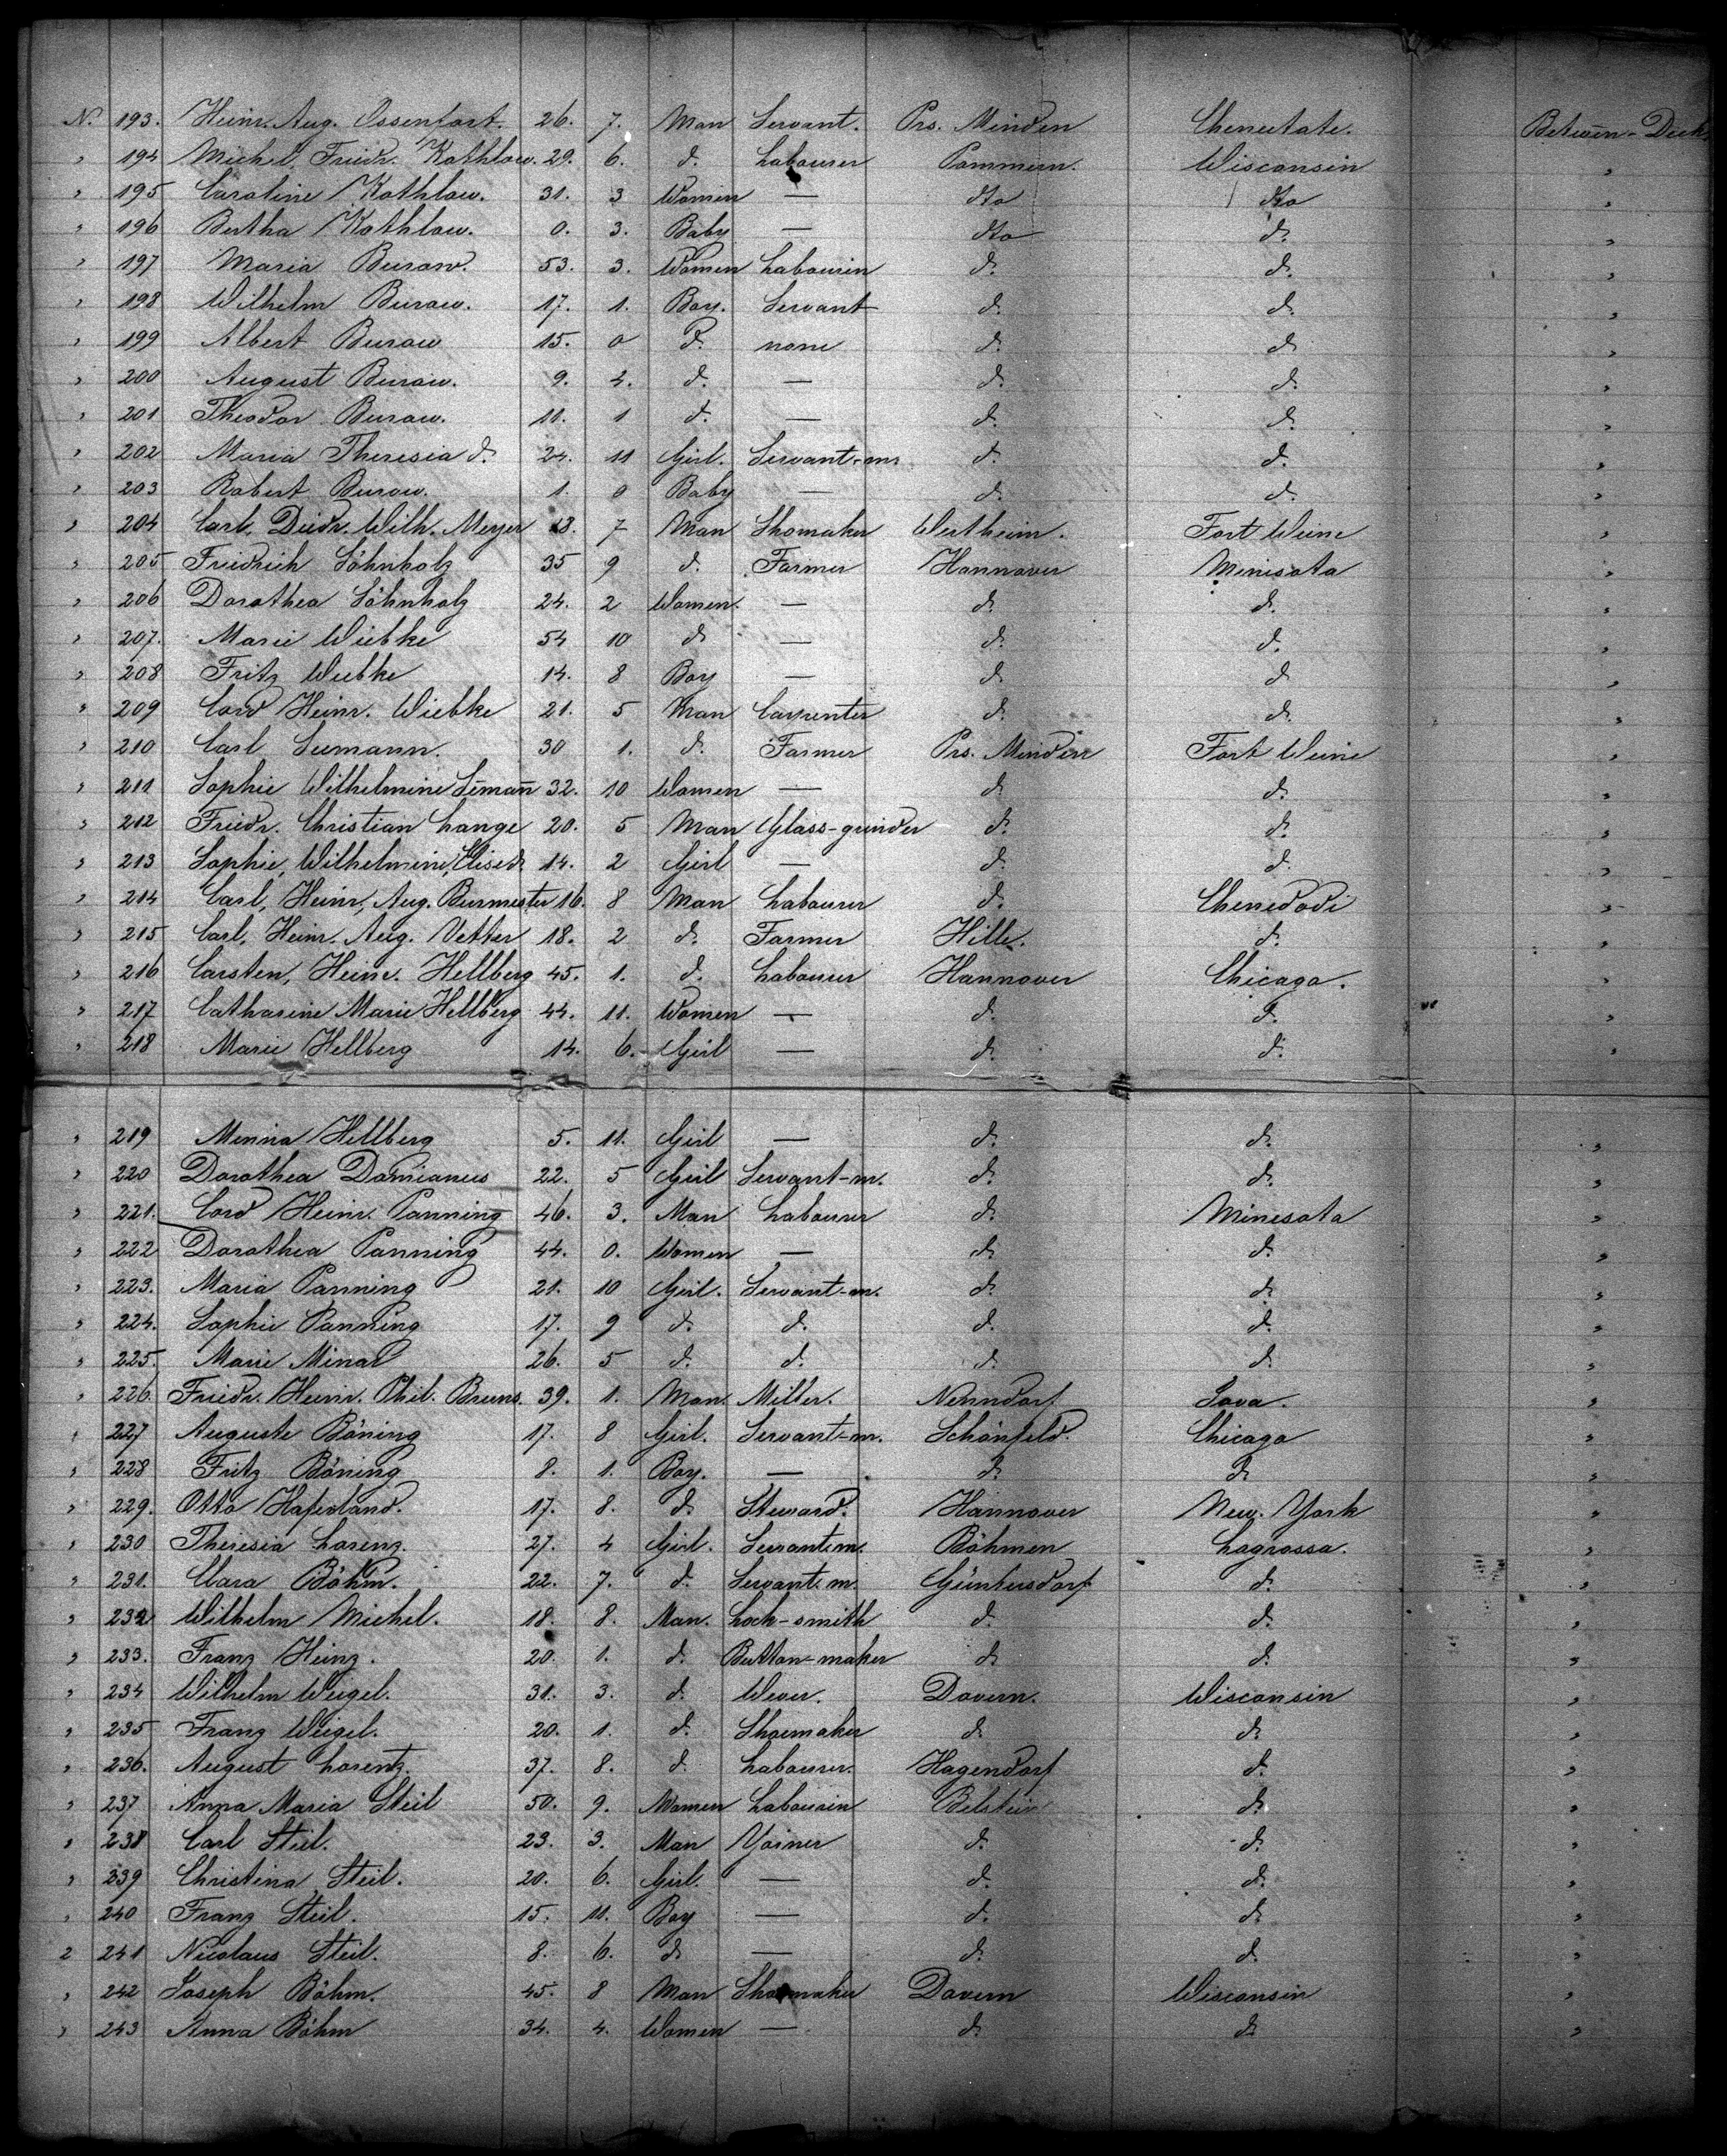 N. 193. Heinr. Aug. Ossenfort. 26. 7. Man Servant. Prs. Minden Chenectate. Betwēn-Deck
" 194 Michel, Friedr. Kathlow. 29. 6. d. Labourer Pommern. Wisconsin "
" 195 Caroline Kathlow. 31. 3 Women — dto dto "
" 196 Bertha Kathlow. 0. 3. Baby — dto d. "
" 197 Maria Burow. 53. 3. Women Labourin d. d. "
" 198 Wilhelm Burow. 17. 1. Boy. Servant d. d. "
" 199 Albert Burow 15. 0 d. none d. d. "
" 200 August Burow. 9. 4. d. — d. d. "
" 201 Theodor Burow. 11. 1 d. — d. d. "
" 202 Maria Theresia d. 24. 11 Girl. Servant-m. d. d. "
" 203 Robert Burow. 1. 0 Baby — d. d. "
" 204 Carl, Diedr. Wilh. Meyer 18. 7 Man Shomaker Wertheim. Fort Weine "
" 205 Friedrich Söhnholz 35 9 d. Farmer Hannover Minisota "
" 206 Dorothea Söhnholz 24. 2 Women. — d. d. "
" 207. Marie Wiebke 54 10 d — d. d. "
" 208 Fritz Wiebke 14. 8 Boy — d. d "
" 209 Cord Heinr. Wiebke 21. 5 Man Carpenter d. d. "
" 210 Carl Seemann. 30 1. d. Farmer Prs. Minden Fort Weine "
" 211 Sophie Wilhelmine Sēman̄ 32. 10 Women — d. d. "
" 212 Friedr. Christian Lange 20. 5 Man Glass-grinder d. d. "
" 213 Sophie, Wilhelmine, Elise d. 14. 2 Girl — d. d. "
" 214 Carl, Heinr, Aug. Burmester 16. 8 Man Labourer d. Chenedodi "
" 215 Carl, Heinr. Aug. Vetter 18. 2 d. Farmer Hille. d. "
" 216 Carsten, Heinr. Hellberg 45. 1. d. Labourer Hannover Chicago. "
" 217 Catharine Marie Hellberg 44. 11. Women — d. d. "
" 218 Marie Hellberg 14. 6. Girl — d. d. "
" 219 Minna Hellberg 5. 11. Girl — d. d. "
" 220 Dorothea Damianus 22. 5 Girl Servant-m. d. d. "
" 221. Cord Heinr. Panning 46. 3. Man Labourer d. Minesota "
" 222 Dorothea Panning 44. 0. Women — d. d. "
" 223. Maria Panning 21. 10 Girl. Servant-m. d. d. "
" 224. Sophie Panning 17. 9 d. d. d. d. "
" 225. Marie Minar 26. 5 d. d. d. d. "
" 226. Friedr. Heinr. Phil. Bruns. 39. 1. Man. Miller. Nenndorf Iova. "
" 227 Auguste Böning 17. 8 Girl. Servant-m. Schönfeld. Chicago "
" 228 Fritz Böning 8. 1. Boy. — d. d. "
" 229. Otto Haferland. 17. 8. d. Steward. Hannover New-York "
" 230 Theresia Lorenz. 27. 4 Girl. Servant-m. Böhmen Lagrossa. "
" 231. Clara Böhm. 22. 7. d. Servant-m. Güntersdorf d. "
" 232 Wilhelm Michel. 18. 8. Man. Lock-smith d. d. "
" 233. Franz Heinz. 20. 1. d. Button-maker d. d. "
" 234 Wilhelm Weigel. 31. 3. d. Wever. Davern. Wisconsin "
" 235 Franz Weigel. 20. 1. d. Shoemaker d. d. "
" 236. August Lorentz. 37. 8. d. Labourer. Hagendorf d. "
" 237 Anna Maria Steil 50. 9. Women Labourin Belstein d. "
" 238 Carl Steil. 23. 3. Man Yoiner d. d. "
" 239 Christina Steil. 20. 6. Girl. — d. d. "
" 240 Franz Steil. 15. 11. Boy — d. d. "
2 241 Nicolaus Steil. 8. 6. d. — d. d. "
" 242 Joseph Böhm. 45. 8 Man Shoemaker Davern Wisconsin "
" 243 Anna Böhm 34. 4. Women — d. d. "